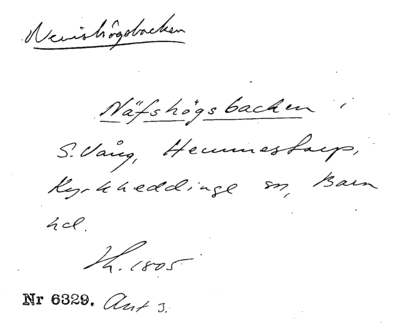 Nevishögsbacken
Näfshögsbacken i
S. Vång, Hemmestorp,
Kyrkheddinge sn, Bara
hd.
Th. 1805
Nr 6329. Ant 3.